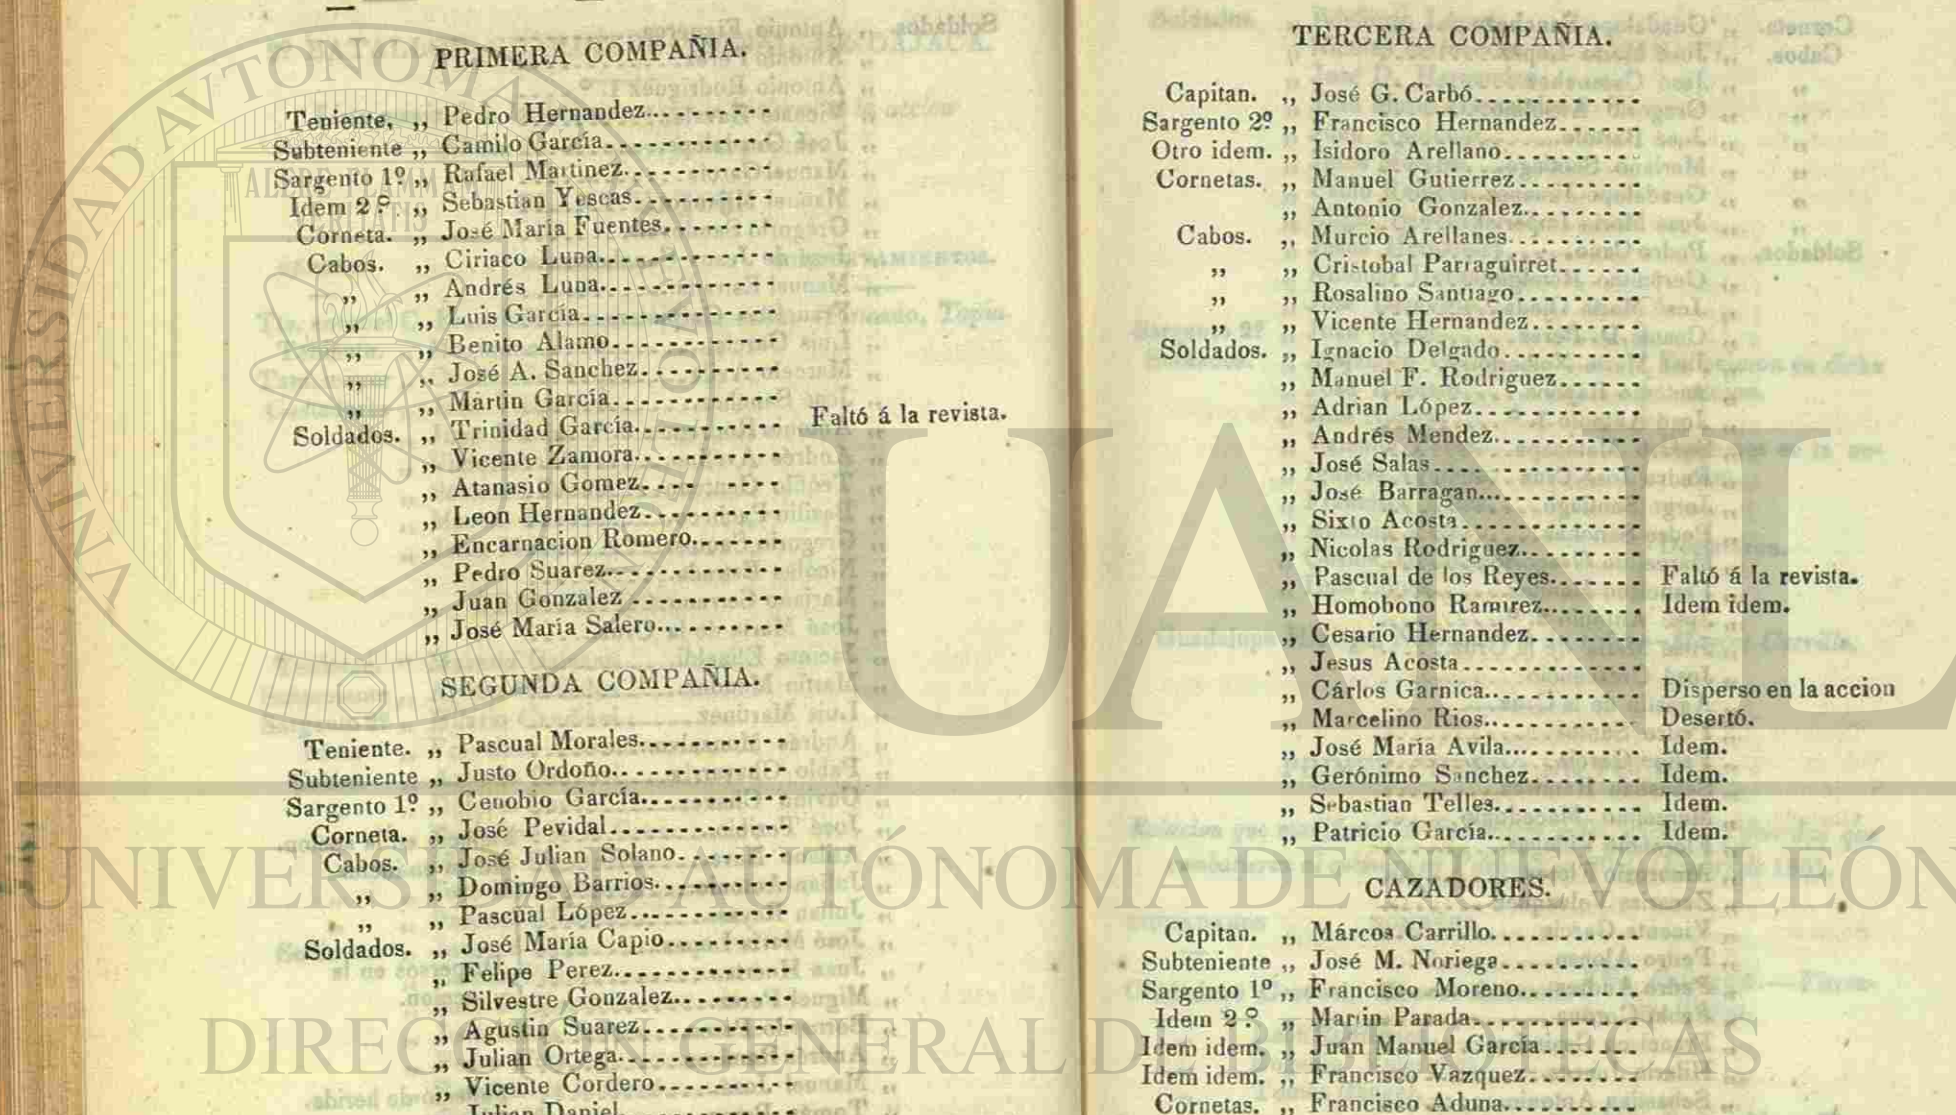 PRIMERA COMPAÑIA.
Teniente, ,, Pedro Hernandez............
Subteniente ,, Camilo García............
Sargento 1º ,, Rafael Martinez............
Idem 2º. ,, Sebastian Yescas............
Corneta. ,, José María Fuentes........
Cabos. ,, Ciriaco Luna............
,, ,, Andrés Luna............
,, ,, Luis García............
,, ,, Benito Alamo............
,, ,, José A. Sanchez..........
,, ,, Martin García............
Soldados. ,, Trinidad García........... Faltó á la revista.
,, Vicente Zamora...........
,, Atanasio Gomez.... ....
,, Leon Hernandez..........
,, Encarnacion Romero.......
,, Pedro Suarez.............
,, Juan Gonzalez ...........
,, José María Salero...........
SEGUNDA COMPAÑIA.
Teniente. ,, Pascual Morales...........
Subteniente ,, Justo Ordoño.............
Sargento 1º ,, Cenobio García...........
Corneta. ,, José Pevidal.............
Cabos. ,, José Julian Solano.........
,, ,, Domingo Barrios..........
,, ,, Pascual López............
Soldados. ,, José María Capio..........
,, Felipe Perez.............
,, Silvestre Gonzalez.........
,, Agustin Suarez...........
,, Julian Ortega.............
,, Vicente Cordero..........
Julian Daniel
TERCERA COMPAÑIA.
Capitan. ,, José G. Carbó............
Sargento 2º ,, Francisco Hernandez......
Otro idem. ,, Isidoro Arellano..........
Cornetas. ,, Manuel Gutierrez.........
,, Antonio Gonzalez.........
Cabos. ,, Murcio Arellanes..........
,, ,, Cristobal Parraguirret......
,, ,, Rosalino Santiago.........
,, ,, Vicente Hernandez........
Soldados. ,, Ignacio Delgado..........
,, Manuel F. Rodriguez......
,, Adrian López............
,, Andrés Mendez...........
,, José Salas...............
,, José Barragan............
,, Sixto Acosta.............
,, Nicolas Rodriguez.........
,, Pascual de los Reyes....... Faltó á la revista.
,, Homobono Ramirez........ Idem idem.
,, Cesario Hernandez........
,, Jesus Acosta.............
,, Cárlos Garnica........... Disperso en la accion
,, Marcelino Rios........... Desertó.
,, José María Avila.......... Idem.
,, Gerónimo Sanchez........ Idem.
,, Sebastian Telles.......... Idem.
,, Patricio García........... Idem.
CAZADORES.
Capitan. ,, Márcos Carrillo...........
Subteniente ,, José M. Noriega..........
Sargento 1º ,, Francisco Moreno.........
Idem 2º ,, Martin Parada............
Idem idem. ,, Juan Manuel García.......
Idem idem. ,, Francisco Vazquez........
Cornetas. ,, Francisco Aduna..........
UNIVERSIDAD AUTÓNOMA DE NUEVO LEÓN
ALERE FLAMMAM
UANL
UNIVERSIDAD AUTÓNOMA DE NUEVO LEÓN
DIRECCIÓN GENERAL DE BIBLIOTECAS